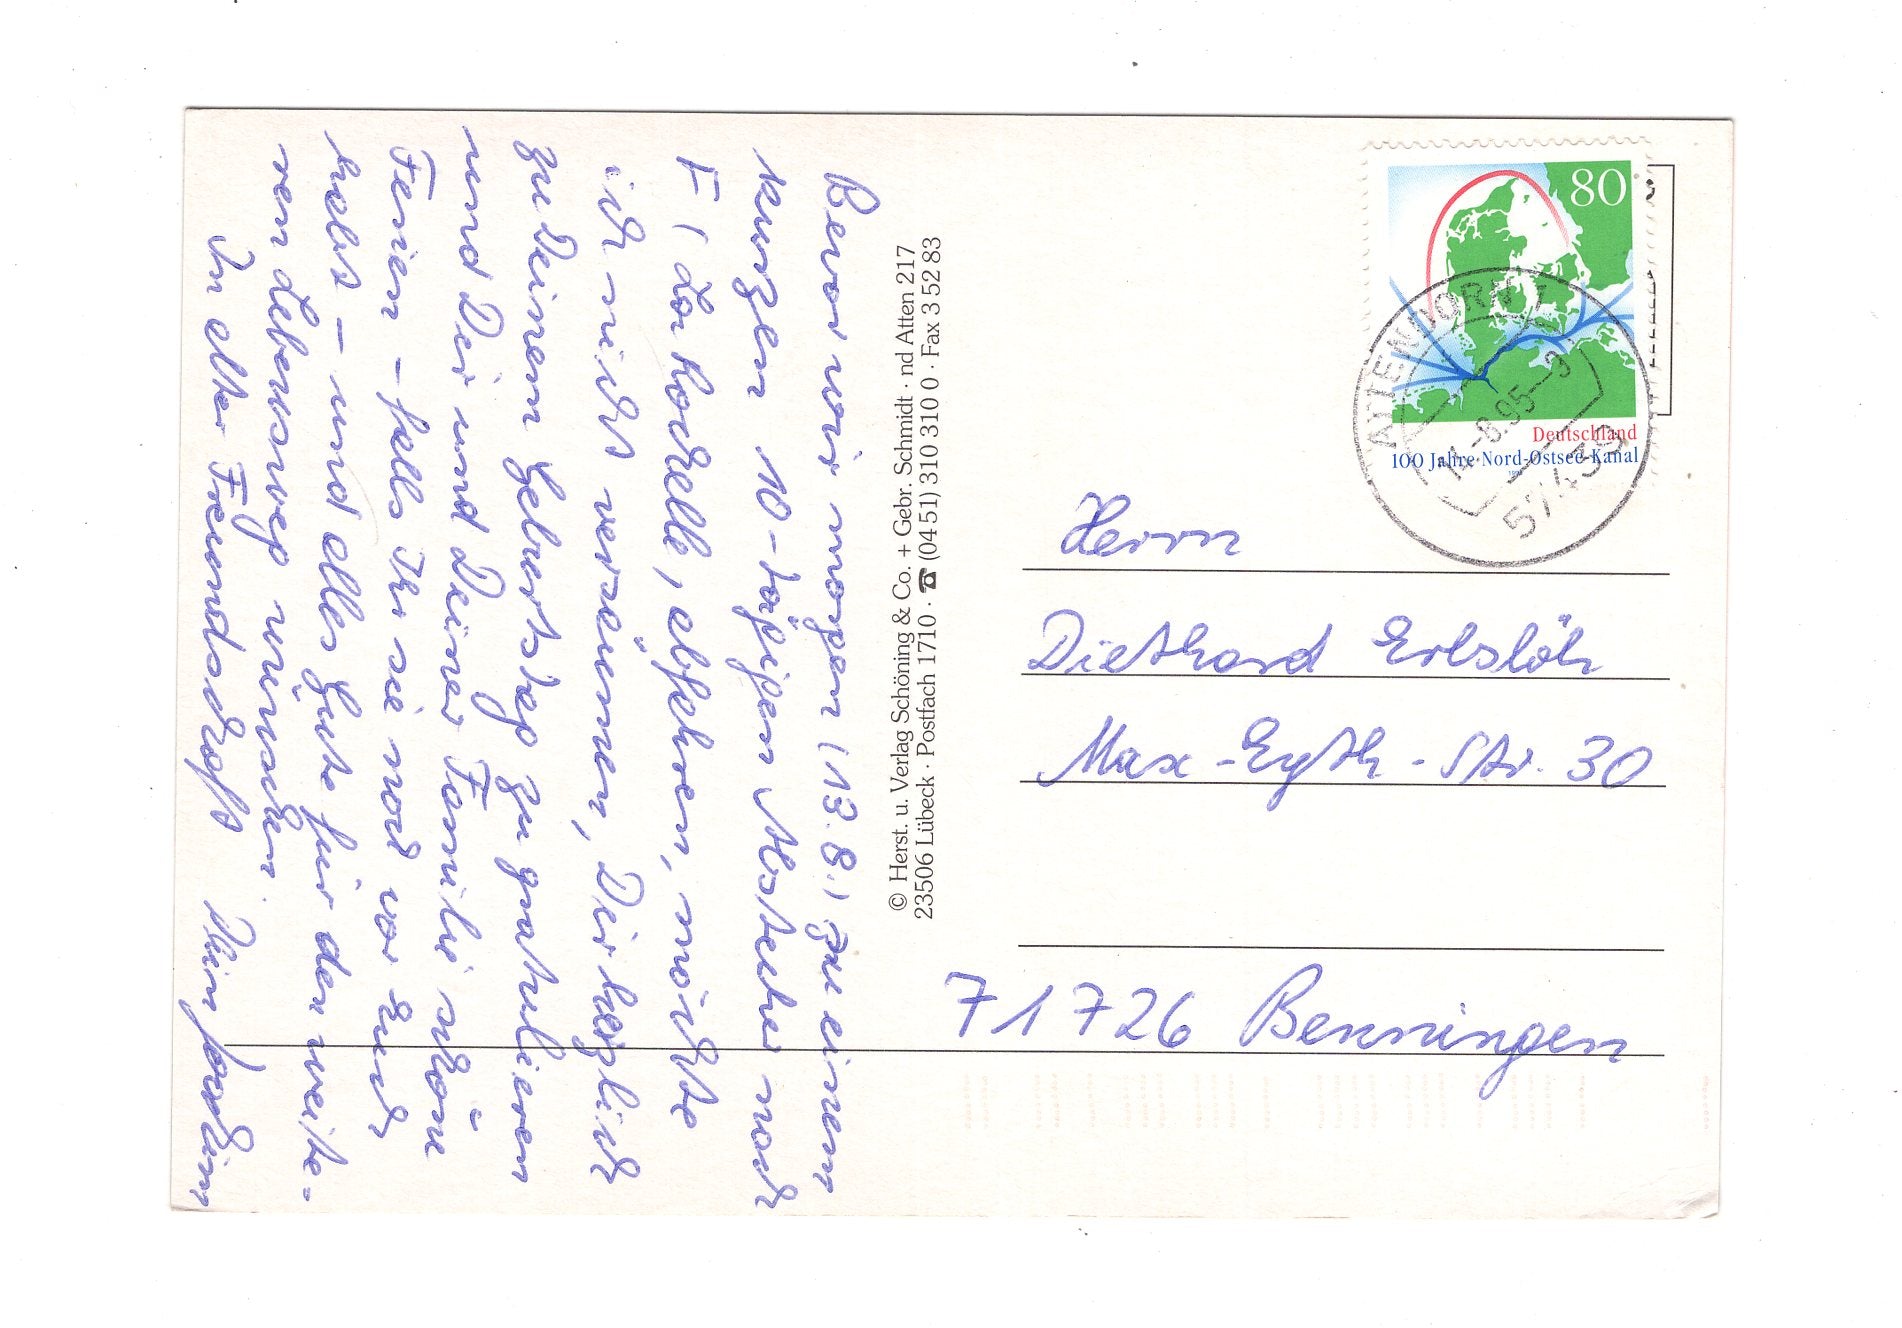 Bevor wir morgen (13.8.) zu einem
kurzen 10-tägigen Abstecher nach
F (La Rochelle, abfahren, möchte
ich nicht versäumen, Dir herzlich
zu Deinem Geburtstag zu gratulieren
und Dir und Deiner Familie schöne
Ferien - falls Ihr sie noch vor Euch
habt - und alles Gute für den weite-
ren Lebensweg wünschen.
In alter Freundschaft Dein Joachim
© Herst. u. Verlag Schöning & Co. + Gebr. Schmidt · nd Atten 217
23506 Lübeck · Postfach 1710 · ☎ (04 51) 310 310 0 · Fax 3 52 83
80
Deutschland
100 Jahre Nord-Ostsee-Kanal
ATTENDORN 1
14.-8.95--9
57439
Herrn
Diethard Erbslöh
Max-Eyth-Str. 30
71726 Benningen